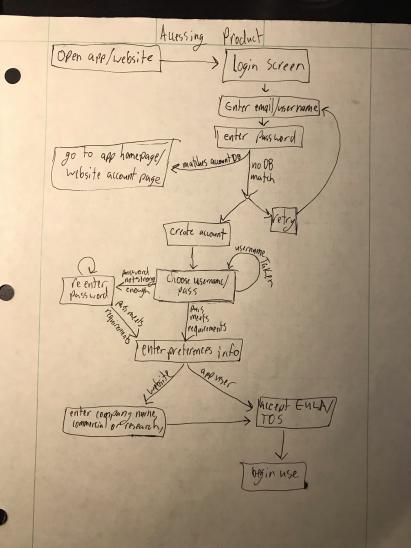 Accessing Product
Open app/website
Login Screen
Enter email/username
enter Password
matches account DB
go to app homepage/
website account page
no DB
match
retry
create account
username
Taken
Choose username/
pass
password
not strong
enough
re enter
password
pass meets
requirements
pass
meets
requirements
enter preferences info
website
app user
enter company name,
commercial or research,
Accept EULA/
TOS
begin use